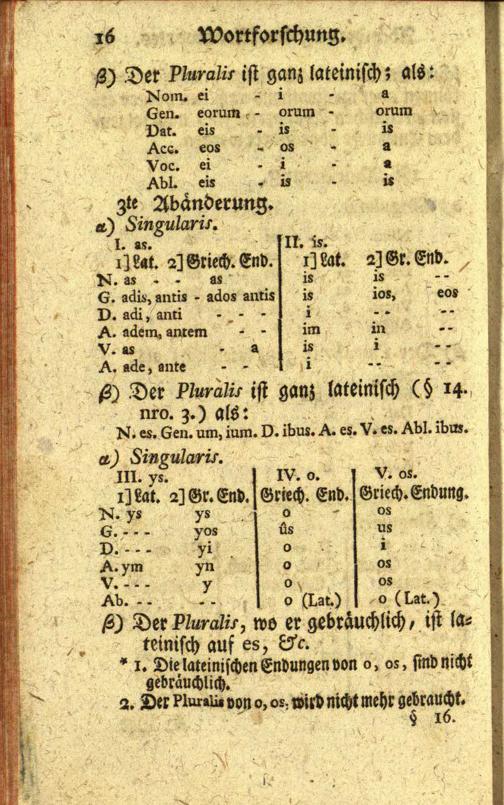 16 Wortforschung.
β) Der Pluralis ist ganz lateinisch; als:
Nom. ei - i - a
Gen. eorum - orum - orum
Dat. eis - is - is
Acc. eos - os - a
Voc. ei - i - a
Abl. eis - is - is
3te Abänderung.
α) Singularis.
I. as. II. is.
1] Lat. 2] Griech. End. 1] Lat. 2] Gr. End.
N. as - - as is is - -
G. adis, antis - ados antis is ios, eos
D. adi, anti - - - i - - - -
A. adem, antem - - im in - -
V. as - a is i - -
A. ade, ante - - - i - - - -
β) Der Pluralis ist ganz lateinisch (§ 14.
nro. 3.) als:
N. es. Gen. um, ium. D. ibus. A. es. V. es. Abl. ibus.
α) Singularis.
III. ys. IV. o. V. os.
1] Lat. 2] Gr. End. Griech. End. Griech. Endung.
N. ys ys o os
G. - - - yos ûs us
D. - - - yi o i
A. ym yn o os
V. - - - y o os
Ab. - - - - o (Lat.) o (Lat.)
β) Der Pluralis, wo er gebräuchlich, ist la=
teinisch auf es, &c.
* 1. Die lateinischen Endungen von o, os, sind nicht
gebräuchlich.
2. Der Pluralis von o, os, wird nicht mehr gebraucht.
§ 16.